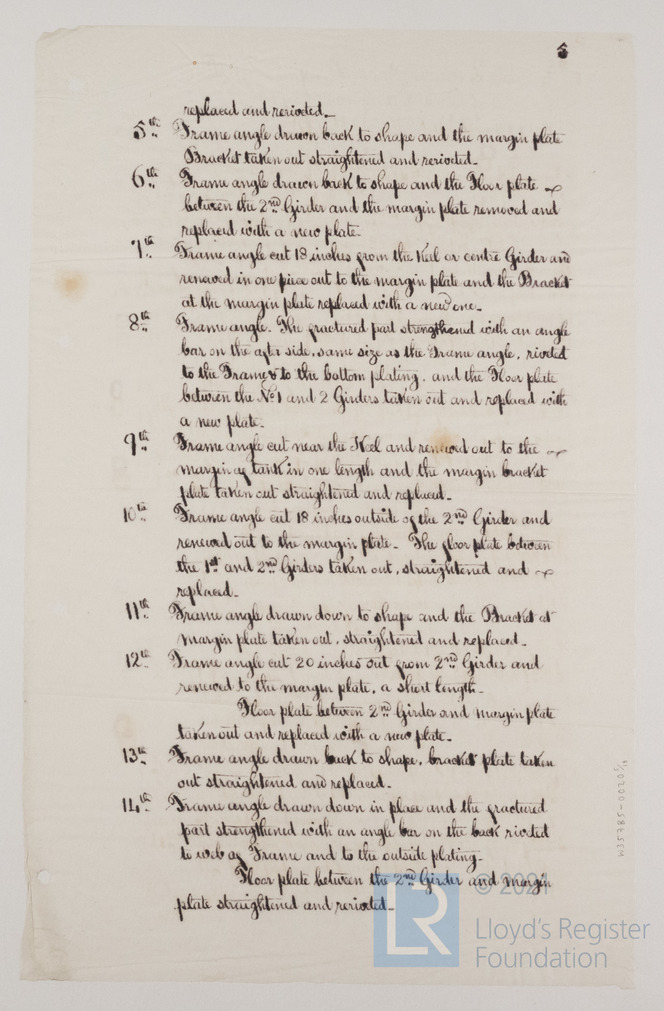 5
replaced and reriveted._
5th Frame angle drawn back to shape and the margin plate
Bracket taken out straightened and reriveted._
6th Frame angle drawn back to shape and the Floor plate
between the 2nd Girder and the margin plate removed and
replaced with a new plate._
7th Frame angle cut 18 inches from the Keel or centre Girder and
renewed in one piece out to the margin plate and the Bracket
at the margin plate replaced with a new one._
8th Frame angle. The fractured part strengthened with an angle
bar on the after side, same size as the Frame angle, riveted
to the Frame & to the bottom plating, and the Floor plate
between the No 1 and 2 Girders taken out and replaced with
a new plate._
9th Frame angle cut near the Keel and renewed out to the
margin of tank in one length and the margin bracket
plate taken out straightened and replaced._
10th Frame angle cut 18 inches outside of the 2nd Girder and
renewed out to the margin plate._ The floor plate between
the 1st and 2nd Girders taken out, straightened and
replaced._
11th Frame angle drawn down to shape and the Bracket at
margin plate taken out, straightened and replaced._
12th Frame angle cut 20 inches out from 2nd Girder and
renewed to the margin plate, a short length._
Floor plate between 2nd Girder and margin plate
taken out and replaced with a new plate._
13th Frame angle drawn back to shape, bracket plate taken
out straightened and replaced._
14th Frame angle drawn down in place and the fractured
part strengthened with an angle bar on the back riveted
to web of Frame and to the outside plating._
Floor plate between the 2nd Girder and margin
plate straightened and reriveted._
© 2021
LR
Lloyd's Register
Foundation